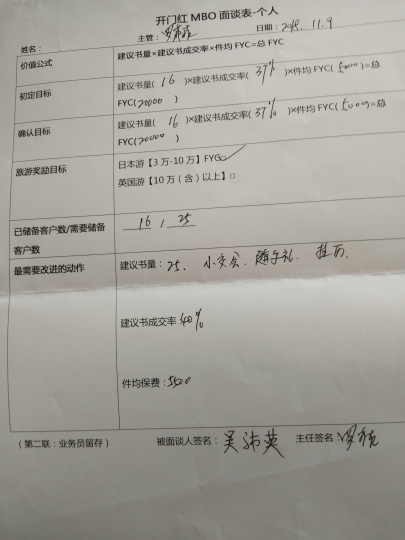 开门红 MBO 面谈表-个人
姓名： 主管： 日期：2018.11.9
价值公式 建议书量×建议书成交率×件均 FYC=总 FYC
初定目标 建议书量( 16 )×建议书成交率( 37% )×件均 FYC( 5000 )=总
FYC(30000 )
确认目标 建议书量( 16 )×建议书成交率( 37% )×件均 FYC( 5000 )=总
FYC(30000 )
旅游奖励目标 日本游【3 万-10 万】FYC✓
英国游【10 万（含）以上】□
已储备客户数/需要储备 16 / 25
客户数
最需要改进的动作 建议书量：25. 小交会. 随手礼. 挂历.
建议书成交率 40%
件均保费：5500
（第二联：业务员留存） 被面谈人签名： 主任签名：